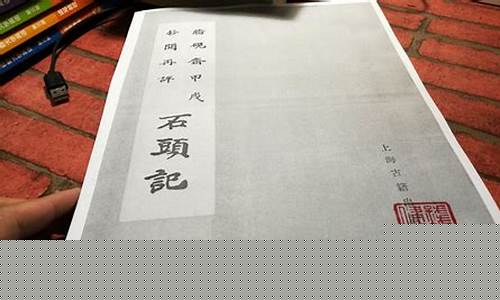 脂硯齋甲戌
抄閱再評
石頭記
上海古籍出